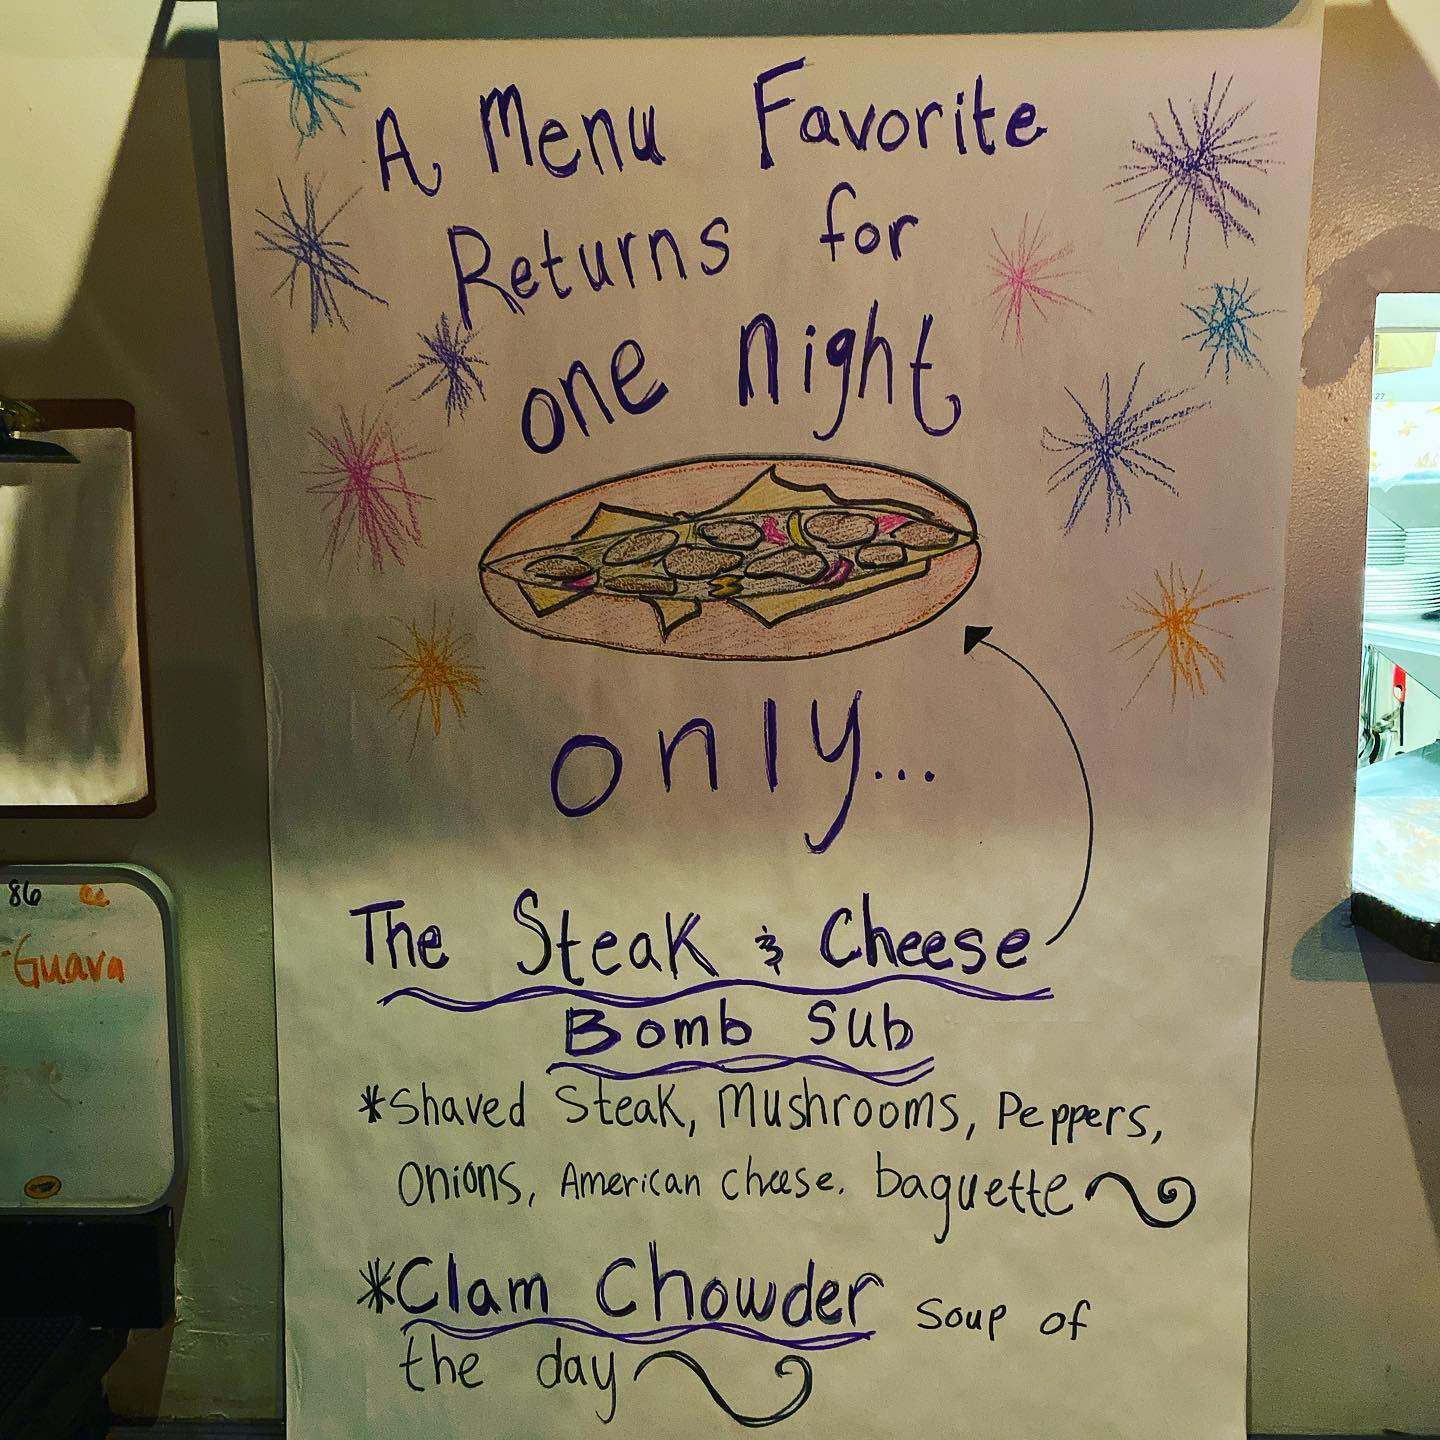 A Menu Favorite
Returns for
one night
only...
The Steak & Cheese
Bomb Sub
*Shaved Steak, Mushrooms, Peppers,
onions, American cheese. baguette
*Clam Chowder soup of
the day
86
Guava
27